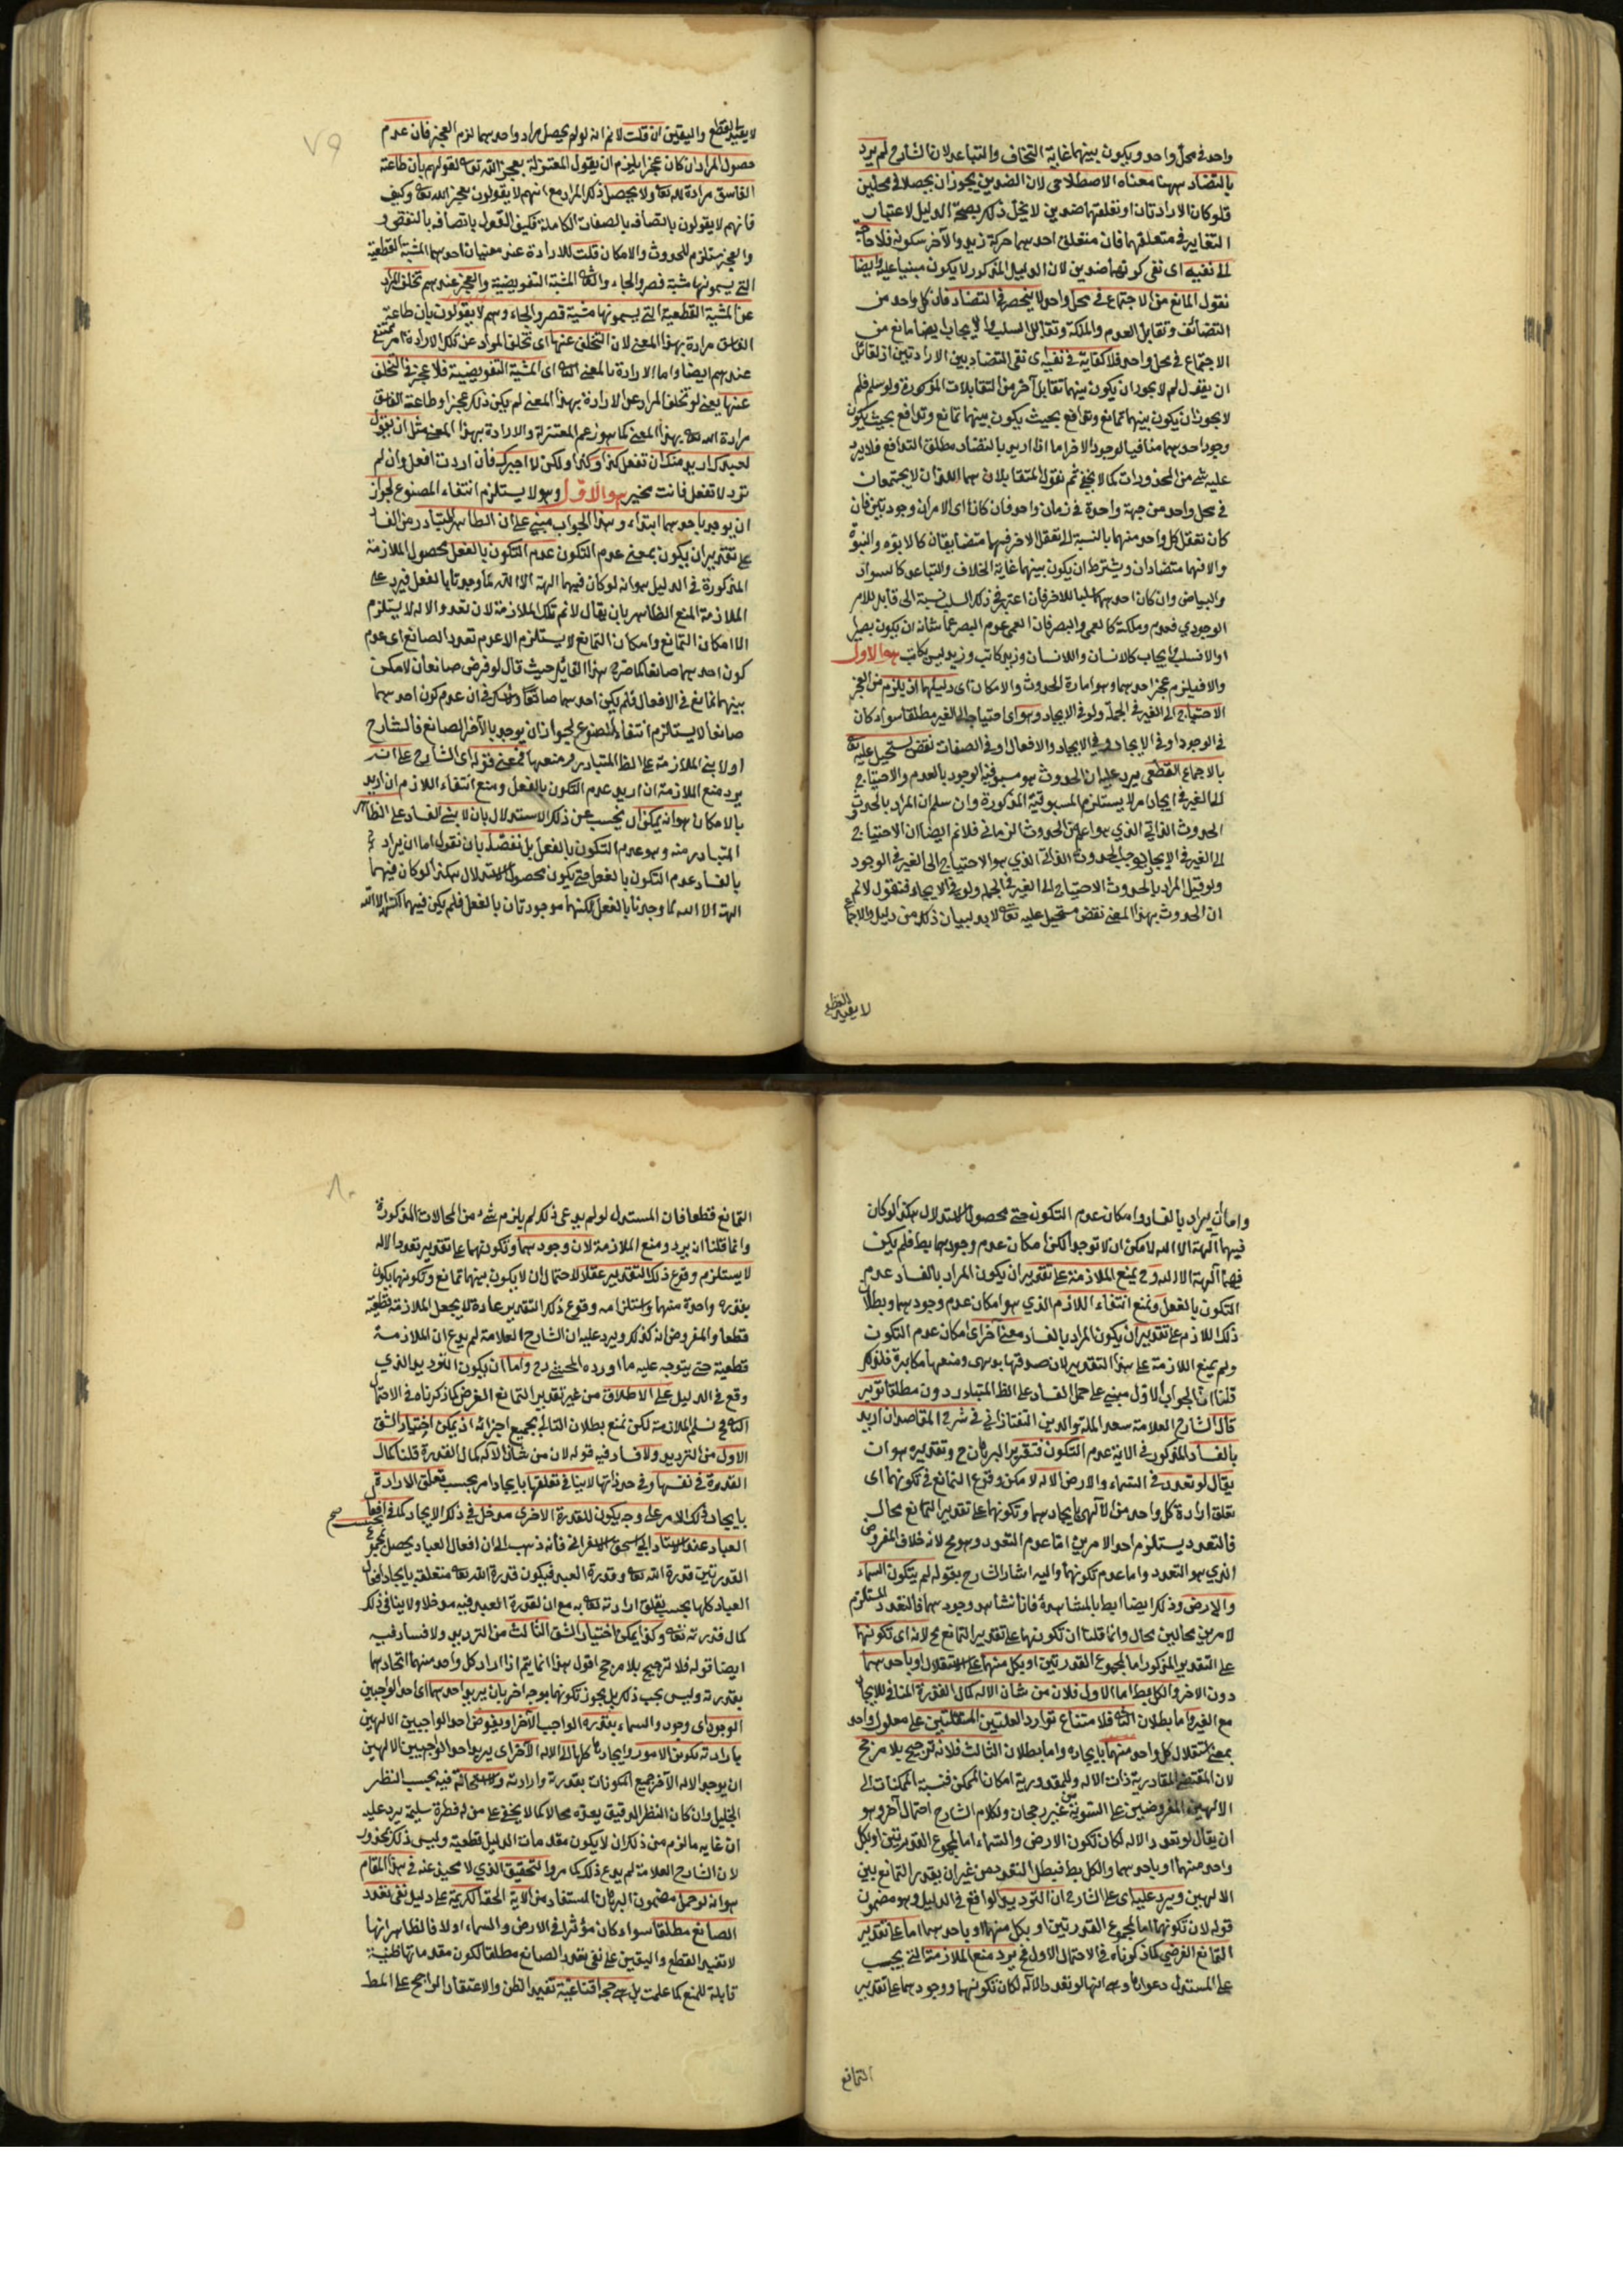 واحد في محل واحد ويكون بينهما غاية التخاف والتباعد لان الشارح لم يرد
بالتضاد ههنا معناه الاصطلاحى لان الضدين يجوز ان يحصلا في محلين
فلو كان الارادتان او تعلقتهما ضدين لا يخل ذلك بصحة الدليل لاعتبار
التغاير في متعلقهما فان متعلق احدهما حركة زيد والآخر سكونه فلا حاجة
الى نفيه اى نفى كونهما ضدين لان الدليل المذكور لا يكون مبنيا عليه وايضا
نقول المانع من الاجتماع في محل واحد لا ينحصر في التضاد فان كل واحد من
التضائف وتقابل العدم والملكة وتقابل السلب والايجاب ايضا مانع من
الاجتماع في محل واحد فلا كفاية في نفيه اى نفى التضاد بين الارادتين اذ لقائل
ان يقول لم لا يجوز ان يكون بينهما تقابل آخر من التقابلات المذكورة ولو سلم فلم
لا يجوز ان يكون بينهما تمانع وتدافع بحيث يكون بينهما تمانع وتدافع بحيث يكون
وجود احدهما منافيا لوجود الاخر اما اذا اريد بالتضاد مطلق التدافع فلا يرد
عليه شئ من المحذورات كما لا يخفى ثم نقول المتقابلان هما اللذان لا يجتمعان
في محل واحد من جهة واحدة في زمان واحد فان كانا اى الامران وجوديين فان
كان تعقل كل واحد منهما بالنسبة الى تعقل الاخر فهما متضايفان كالابوة والنبوة
والا فهما متضادان ويشترط ان يكون بينهما غاية الخلاف والتباعد كالسواد
والبياض وان كان احدهما سلبا للاخر فان اعتبر في ذلك السلب نسبة الى قابل للامر
الوجودي فعدم وملكة كالعمى والبصر فان العمى عدم البصر عما شانه ان يكون بصيرا
اولا فسلب وايجاب كالانسان واللانسان وزيد كاتب وزيد ليس بكاتب هو الاول
والا فيلزم عجز احدهما وهو امارة الحدوث والامكان اى دليلهما ان يلزم من العجز
الاحتياج الى الغير في الجملة ولو في الايجاد وهو اى احتياج الى الغير مطلقا سواء كان
في الوجود او في الايجاد وفي الايجاد والافعال او في الصفات نقض يستحيل عليه تعالى
بالاجماع القطعى يرد عليه ان الحدوث هو مسبوقية الوجود بالعدم والاحتياج
الى الغير في ايجاد امر لا يستلزم المسبوقية المذكورة وان سلم ان المراد بالحدوث
الحدوث الذاتي الذي هو اعم من الحدوث الزماني فلا نم ايضا ان الاحتياج
الى الغير في الايجاد يوجب الحدوث الذاتي الذي هو الاحتياج الى الغير في الوجود
ولو قيل المراد بالحدوث الاحتياج الى الغير في الجملة ولو في الايجاد فنقول لا نم
ان الحدوث بهذا المعنى نقض مستحيل عليه تعالى لا بد لبيان ذلك من دليل والاجماع
لا يفيد القطع
لا يفيد القطع واليقين ان قلت لا نم انه لو لم يحصل مراد واحد منهما لزم العجز فان عدم
حصول المراد ان كان عجزا يلزم ان يقول المعتزلة بعجز الله تعالى لقولهم بأن طاعة
الفاسق مرادة لله تعالى ولا يحصل ذلك المراد مع انهم لا يقولون بعجز الله تعالى وكيف
فانهم لا يقولون باتصافه بالصفات الكاملة فكيف القول باتصافه بالنقض و
والعجز مستلزم للحدوث والامكان قلت للارادة عندهم معنيان احدهما المشية القطعية
التي يسمونها مشية قصر والجاء والثانى المشية التفويضية والعجز عندهم تخلف المراد
عن المشية القطعية التي يسمونها مشية قصر والجاء وهم لا يقولون بان طاعة
الفاسق مرادة بهذا المعنى لان التخلف عنها اى تخلف المراد عن تلك الارادة امر ممتنع
عندهم ايضا واما الارادة بالمعنى الثانى اى المشية التفويضية فلا عجز في التخلف
عنها يعنى لو تخلف المراد عن الارادة بهذا المعنى لم يكن ذلك عجزا وطاعة الفاسق
مرادة الله تعالى بهذا المعنى كما هو زعم المعتزلة والارادة بهذا المعنى مثل ان يقول
لعبدك اريد منك ان تفعل كذا وكذا ولكن لا اجبرك فان اردت افعل وان لم
ترد لا تفعل فانت مخير هو الاول وهو لا يستلزم انتفاء المصنوع لجواز
ان يوجد باحدهما ابتداء وهذا الجواب مبني على ان الظاهر المتبادر من الفساد
على تقدير ان يكون بمعنى عدم التكون عدم التكون بالفعل محصول الملازمة
المذكورة في الدليل هو انه لو كان فيهما الهة الا الله لما وجدتا بالفعل فيرد على
الملازمة المنع الظاهر بان يقال لا نم تلك الملازمة لان تعدد الاله لا يستلزم
الا امكان التمانع وامكان التمانع لا يستلزم الا عدم تعدد الصانع اى عدم
كون احدهما صانعا كما صرح هذا القائل حيث قال لو فرض صانعان لامكن
بينهما تمانع في الافعال فلم يكن احدهما صانعا ولا شك في ان عدم كون احدهما
صانعا لا يستلزم انتفاء المصنوع لجواز ان يوجد بالآخر الصانع فالشارح
اولا بنى الملازمة على الظ المتبادر ومنعها فمعنى قوله اى الشارح على انه
يرد منع الملازمة ان اريد عدم التكون بالفعل ومنع انتفاء اللازم ان اريد
بالامكان هو انه يمكن ان يجيب عن ذلك الاستدلال بان لا يبنى الفساد على الظاهر
المتبادر منه وهو عدم التكون بالفعل بل نفصل بان نقول اما ان يراد
بالفساد عدم التكون بالفعل حتى يكون محصول الاستدلال هكذا لو كان فيهما
الهة الا الله لما وجدتا بالفعل لكنهما موجودتان بالفعل فلم يكن فيهما الهة الا الله
واما ان يراد بالفساد امكان عدم التكون حتى محصول الاستدلال هكذا لو كان
فيهما آلهة الا الله لامكن ان لا توجدا لكن امكان عدم وجودهما بط فلم يكن
فيهما آلهة الا الله وح يمنع الملازمة على تقدير ان يكون المراد بالفساد عدم
التكون بالفعل ونمنع انتفاء اللازم الذي هو امكان عدم وجودهما وبطلان
ذلك اللازم على تقدير ان يكون المراد بالفساد معنى آخر اى امكان عدم التكون
ولم يمنع الملازمة على هذا التقدير لان صدقها بديهى ومنعها مكابرة فلذلك
قلنا ان الجواب الاول مبني على حمل الفساد على الظ المتبادر دون مطلقا توير
قال الشارح العلامة سعد الملة والدين التفتازاني في شرح المقاصد ان اريد
بالفساد المذكور في الاية عدم التكون فتقرير البرهان ح وتقديره هو ان
يقال لو تعدد في السماء والارض الاله لامكن وقوع التمانع في تكونهما اى
تعلق ارادة كل واحد من الآلهين بايجادهما وتكونهما على تقدير التمانع محال
فالتعدد يستلزم احد الامرين اما عدم التعدد وهو مح لانه خلاف المفروض
الذي هو التعدد واما عدم تكونهما واليه اشار الشارح بقوله لم يتكون السماء
والارض وذلك ايضا بط بالمشاهدة فانا نشاهد وجودهما فالتعدد المستلزم
لامرين محالين محال وانما قلنا ان تكونهما على تقدير التمانع مح لانه اى تكونهما
على التقدير المذكور اما بمجموع القدرتين او بكل منهما على الاستقلال او باحدهما
دون الاخر والكل بط اما الاول فلان من شان الاله كمال القدرة المنافى للايجاد
مع الغير واما بطلان الثانى فلامتناع توارد العلتين المستقلتين على معلول واحد
بمعنى استقلال كل واحد منهما بايجاده واما بطلان الثالث فلانه ترجيح بلا مرجح
لان المقتضى للقادرية ذات الاله وللمقدورية امكان الممكن فنسبة الممكنات الى
الالهين المفروضين على السوية من غير رجحان ولكلام الشارح احتمال آخر وهو
ان يقال لو تعدد الاله لكان تكون الارض والسماء اما بمجموع القدرتين او بكل
واحد منهما او باحدهما والكل بط فيبطل التعدد من غير ان يقدر التمانع بين
الالهين ويرد عليه اى على الشارح ان الترديد الواقع في الدليل وهو مضمون
قوله لان تكونهما اما بمجموع القدرتين او بكل منهما او باحدهما اما على تقدير
التمانع الفرضى كما ذكرناه في الاحتمال الاول فح يرد منع الملازمة التي يجيب
على المستدل دعواها وهى انها لو تعدد الاله لكان تكونهما ووجودهما على تقدير
التمانع
التمانع قطعا فان المستدل لو لم يدعى ذلك لم يلزم شئ من المحالات المذكورة
وانما قلنا ان يرد ومنع الملازمة لان وجودهما وتكونهما على تقدير تعدد الاله
لا يستلزم وقوع ذلك التقدير عقلا لاحتمال ان لا يكون بينهما تمانع وتكونهما يكون
بقدرة واحدة منهما واستلزامه وقوع ذلك التقدير عادة لا يجعل الملازمة قطعية
قطعا والمفروض انه كذلك ويرد عليه ان الشارح العلامة لم يدع ان الملازمة
قطعية حتى يتوجه عليه ما اورده المحشى رح واما ان يكون الترديد الذي
وقع في الدليل على الاطلاق من غير تقدير التمانع الفرض كما ذكرناه في الاحتمال
الثانى فح نسلم الملازمة لكن نمنع بطلان التالى بجميع اجزائه اذ يمكن اختيار الشق
الاول من الترديد ولا فساد فيه قوله لان من شان الاله كمال القدرة قلنا كمال
القدرة في نفسها وفي حد ذاتها لا ينافى تعلقها بايجاد امر بحسب تعلق الارادة
بايجاد ذلك الامر على وجه يكون للقدرة الاخرى مدخل في ذلك الايجاد كما في افعال
العباد عند الاستاد ابى اسحق الاسفرانى فانه ذهب الى ان افعال العباد يحصل بمجموع
القدرتين قدرة الله تعالى وقدرة العبد فيكون قدرة الله تعالى متعلقة بايجاد افعال
العباد كلها بحسب تعلق ارادته تعالى به مع ان لقدرة العبد فيه مدخلا ولا ينافى ذلك
كمال قدرته تعالى وكذا يمكن اختيار الشق الثالث من الترديد ولا فساد فيه
ايضا قوله فلا ترجيح بلا مرجح اقول هذا انما يتم اذا اراد كل واحد منهما اتحادهما
بقدرته وليس يجب ذلك بل يجوز تكونهما بوجه اخر بان يريد احدهما اى احد الواجبين
الوجود اى وجود والسماء بقدرة الواجب الآخر او يفوض احد الواجبين الالهين
بارادته تكوين الامور وايجادها كلها الى الاله الآخر اى يريد احد الواجبين الالهين
ان يوجد الاله الآخر جميع المكونات بقدرته وارادته ولا استحالة فيه بحسب النظر
الجليل وان كان النظر الدقيق يعده محالا كما لا يخفى على من له فطرة سليمة يرد عليه
ان غاية ما لزم من ذلك ان لا يكون مقدمات الدليل قطعية وليس ذلك بمحذور
لان الشارح العلامة لم يدع ذلك كما مر والتحقيق الذي لا محيد عنه في هذا المقام
هو انه لو حمل مضمون البرهان المستفاد من الاية الحقة الكريمة على دليل نفى تعدد
الصانع مطلقا سواء كان مؤثرا في الارض والسماء اولا فالظاهر انها
لا تفيد القطع واليقين على نفى تعدد الصانع مطلقا لكون مقدماتها ظنية
قابلة للمنع كما علمت بل هى حجة اقناعية تفيد الظن والاعتقاد الراجح على المط